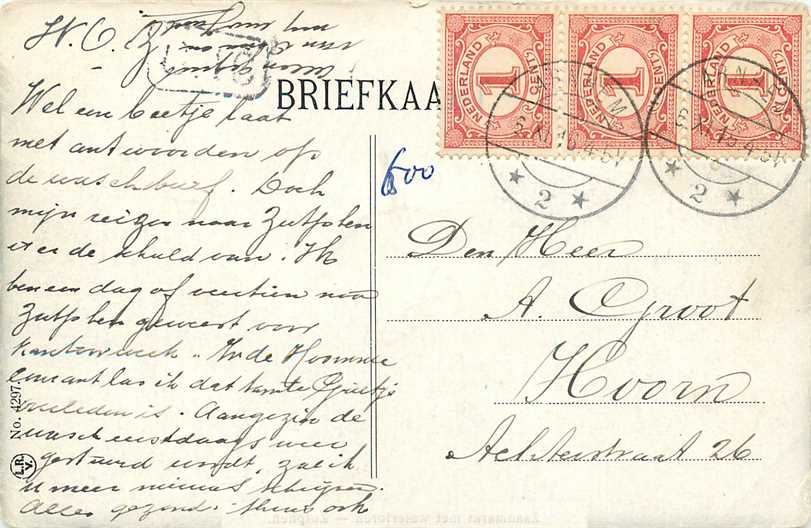 W. C.
Wel een beetje laat
met antwoorden op
de waschbrief. Doch
mijn reizen naar Zutphen
is er de schuld van. Ik
ben een dag of veertien naar
Zutphen geweest voor
kantoorwerk. In de Hoornsche
courant las ik dat tante Grietje
overleden is. Aangezien de
wasch eerstdaags weer
gestuurd wordt, zal ik
u meer nieuws schrijven.
Alles gezond. thuis ook
BRIEFKAA
NEDERLAND 1 CENT
NEDERLAND 1 CENT
NEDERLAND 1 CENT
ARNHEM
2
ARNHEM
2
600
Den Heer
A. Groot
Hoorn
Achterstraat 26
No. 4297.
Zaadmarkt met watertoren — Zutphen.